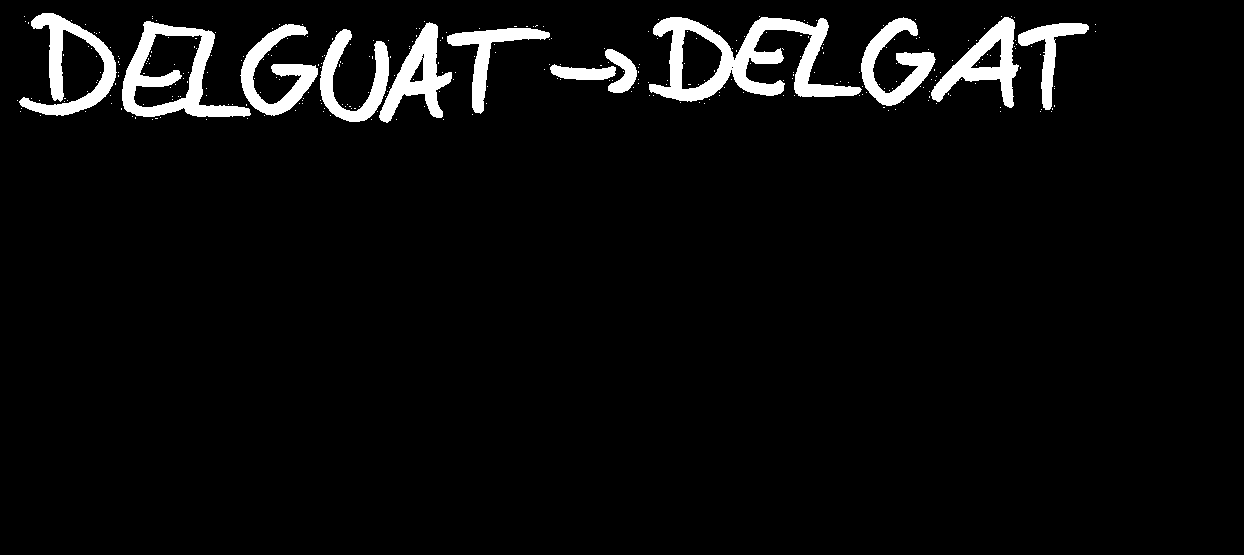 DELGUAT → DELGAT